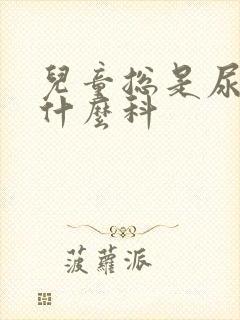 兒童總是尿
什麼科
菠蘿派